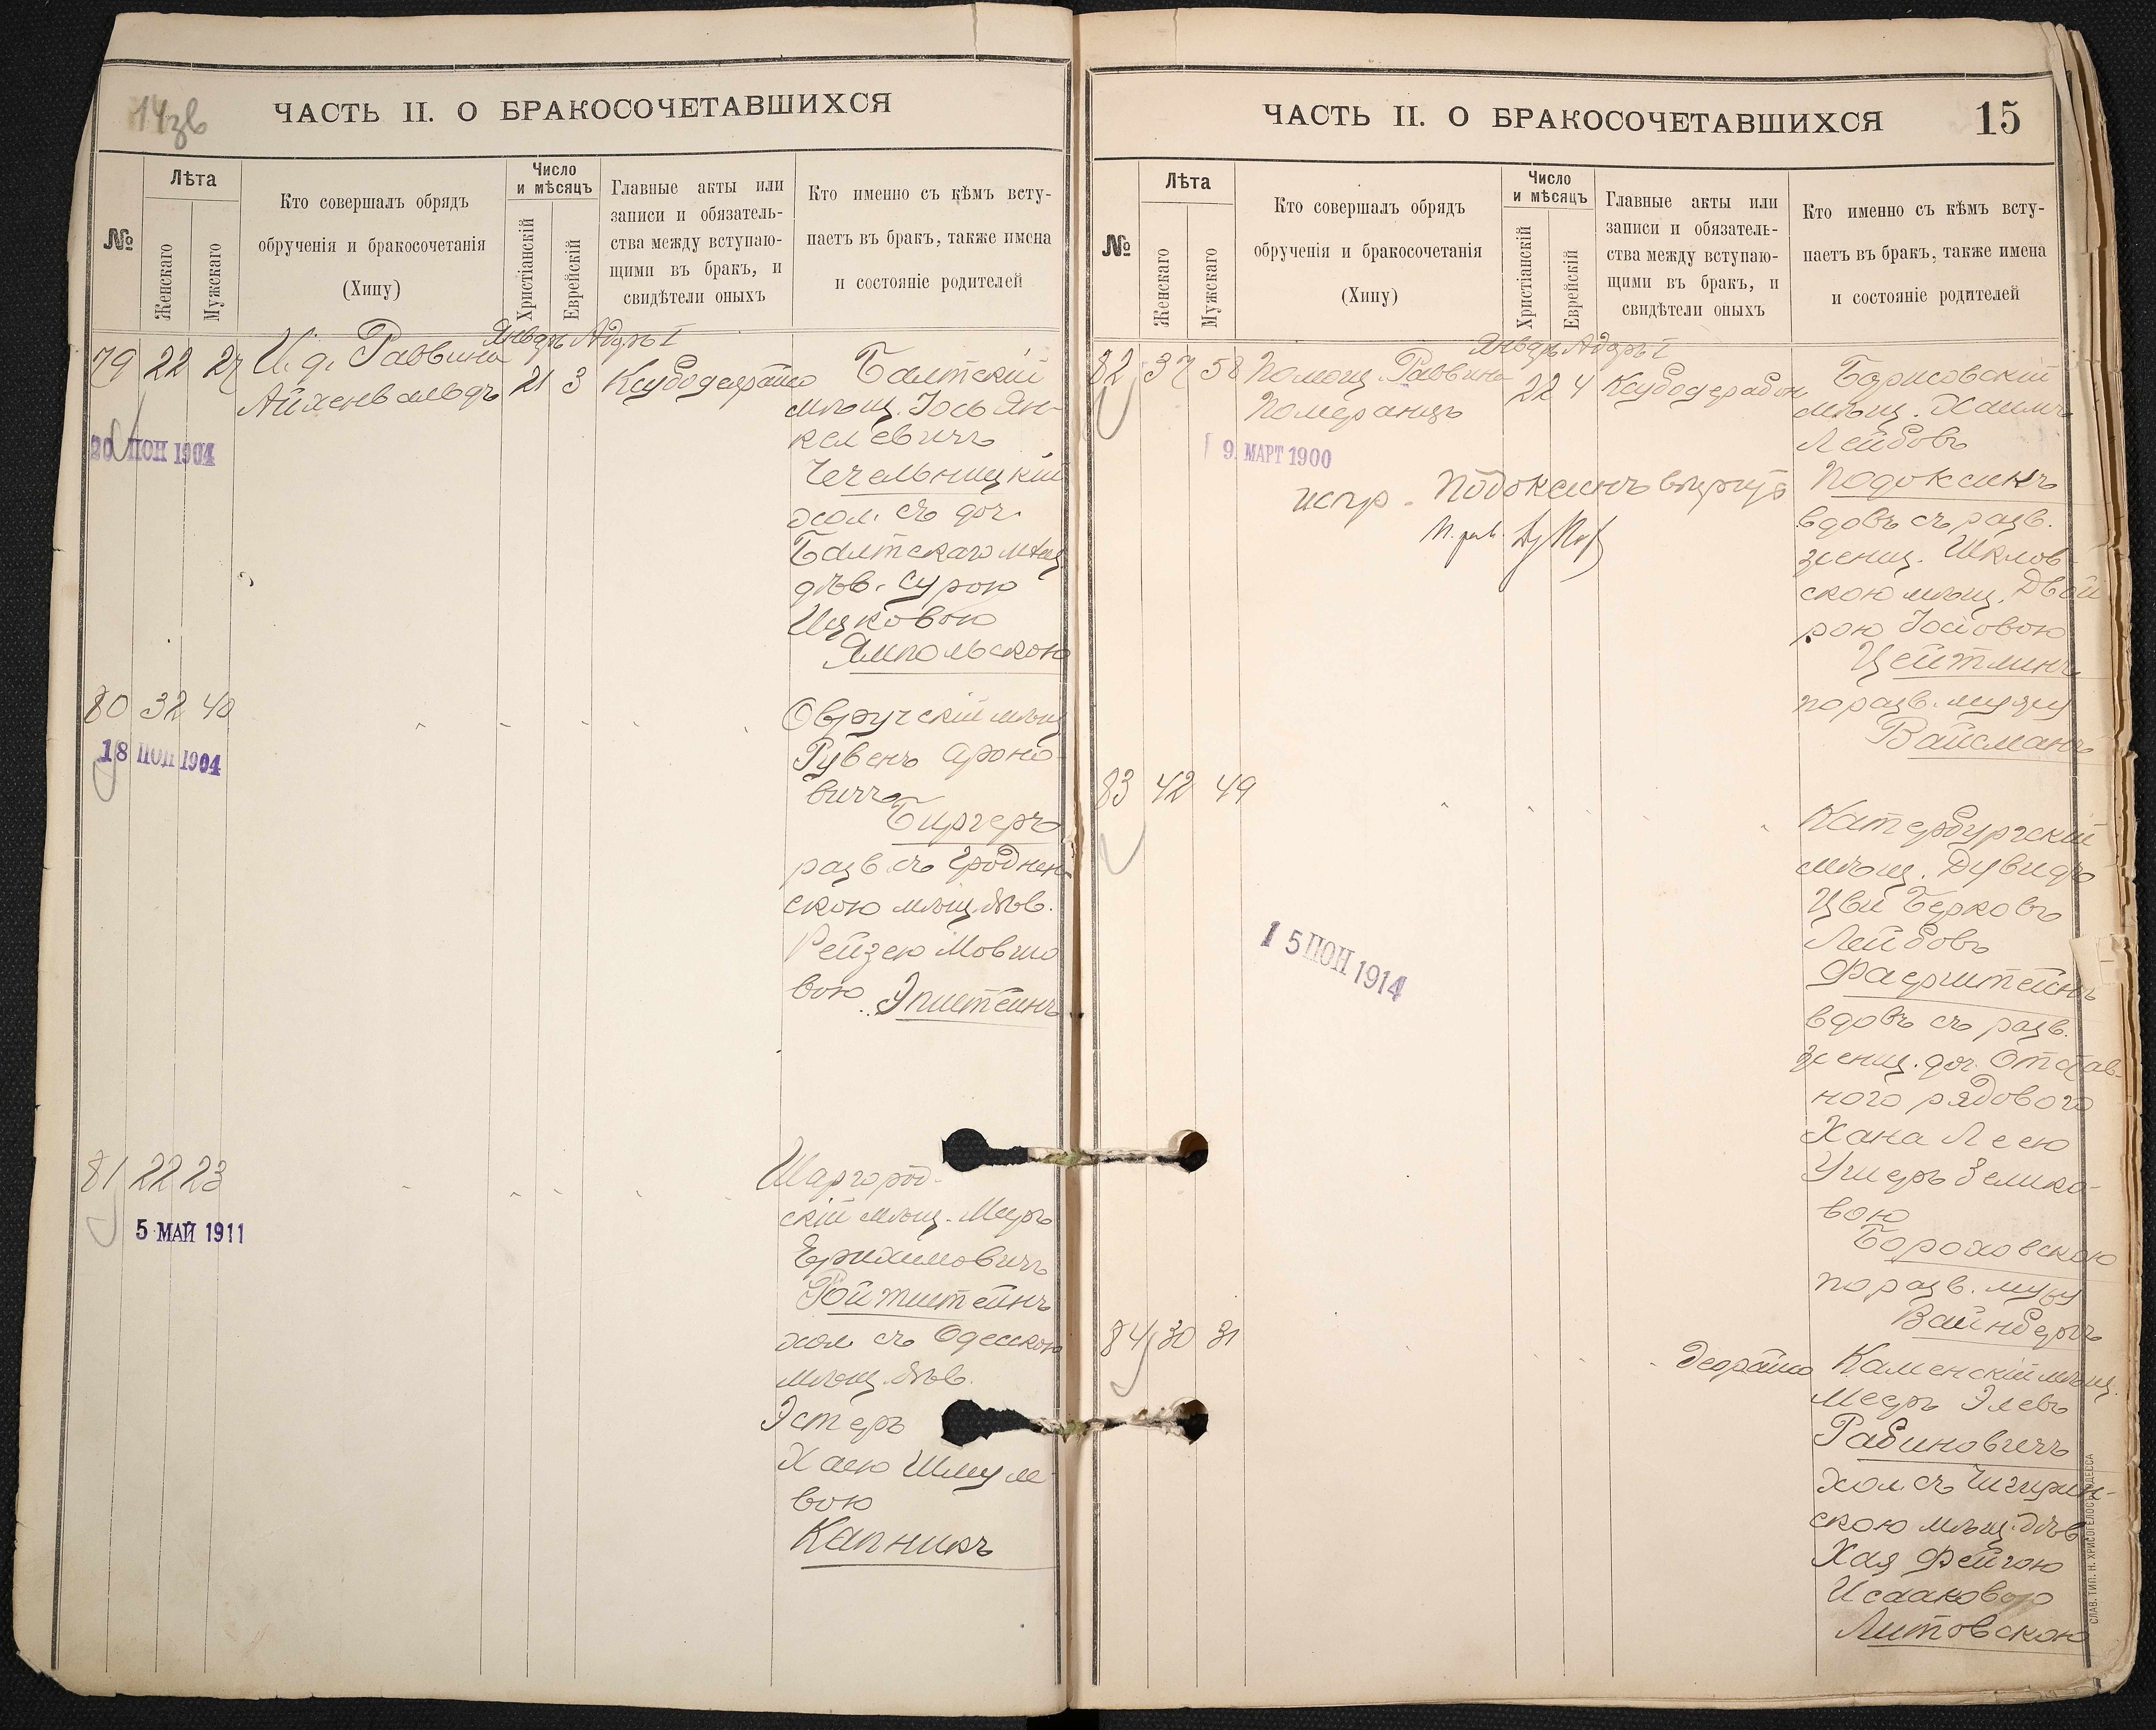 14зв
ЧАСТЬ II. О БРАКОСОЧЕТАВШИХСЯ
№
Лѣта
Женскаго
Мужскаго
Кто совершалъ обрядъ
обрученія и бракосочетанія
(Хипу)
Число
и мѣсяцъ
Христіанскій
Еврейскій
Главные акты или
записи и обязатель-
ства между вступаю-
щими въ бракъ, и
свидѣтели оныхъ
Кто именно съ кѣмъ всту-
паетъ въ бракъ, также имена
и состояніе родителей
Январь Адаръ I
79 22 27 И. д. Раввина
Айхенвальдъ 21 3
Балтскій
мѣщ. Іось Ян-
келевичъ
Чечельницкій
хол. съ доч.
Балтскаго мѣщ
дѣв. Сурою
Ицковою
Ямпольскою
20 ІЮН 1904
80 32 40
18 ІЮН 1904
Овручскій мѣщ
Рувенъ Ароно-
вичъ
Биргеръ
разв. съ Гроднен-
скою мѣщ. дѣв.
Рейзею Мовшо
вою Эпштейнъ
81 22 23
5 МАЙ 1911
Шаргород-
скій мѣщ. Меръ
Ройтштейнъ
хол. съ Одесскою
мѣщ. дѣв.
Эстеръ
Хаею Шмуле-
вою
Капникъ
ЧАСТЬ II. О БРАКОСОЧЕТАВШИХСЯ 15
№
Лѣта
Женскаго
Мужскаго
Кто совершалъ обрядъ
обрученія и бракосочетанія
(Хипу)
Число
и мѣсяцъ
Христіанскій
Еврейскій
Главные акты или
записи и обязатель-
ства между вступаю-
щими въ бракъ, и
свидѣтели оныхъ
Кто именно съ кѣмъ всту-
паетъ въ бракъ, также имена
и состояніе родителей
Январь Адаръ I
82 37 58 Помощ. Раввина
Померанцъ 22 4
9. МАРТ 1900
испр. Подоксинъ вѣрить
Борисовскій
мѣщ. Хаимъ
Лейбовъ
Подоксинъ
вдовъ съ разв.
женщ. Шклов-
скою мѣщ. Двой
рою Іосіовою
Цейтлинъ
по разв. мужу
Вайсманъ
83 42 49
15 ІЮН 1914
Катербургскій
мѣщ. Дувидъ
Цви Берковъ
Лейбовъ
Фаерштейнъ
вдовъ съ разв.
женщ. доч. Отстав-
ного рядового
Хана Леею
Ушеръ Зелико-
вою
Бороховскою
по разв. мужу
Вайнбергъ
84 30 31
Каменскій мѣщ.
Мееръ Элевъ
Рабиновичъ
хол. съ Чигирин-
скою мѣщ. дѣв
Хая Фейгою
Исааковою
Литовскою
СЛАВ. ТИП. Н. ХРИСОГЕЛОСЪ ОДЕССА